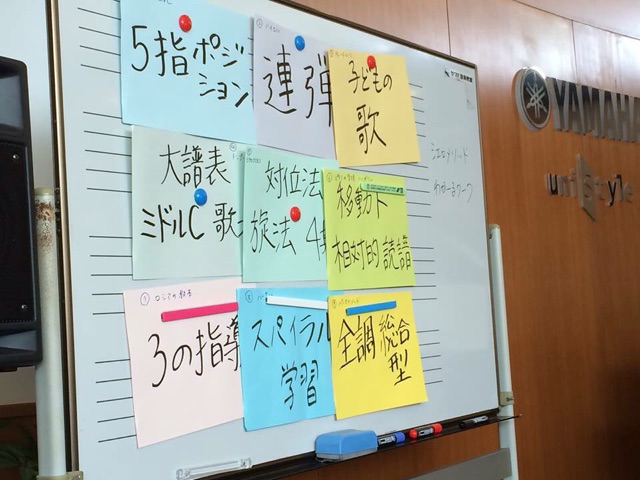 5指ポジ
ション
連弾
子どもの
歌
大譜表
ミドルC 歌
対位法
旋法 4
移動ド
相対的 読譜
3の指導
スパイラル
学習
全調 総合
型
YAMAHA
unistyle